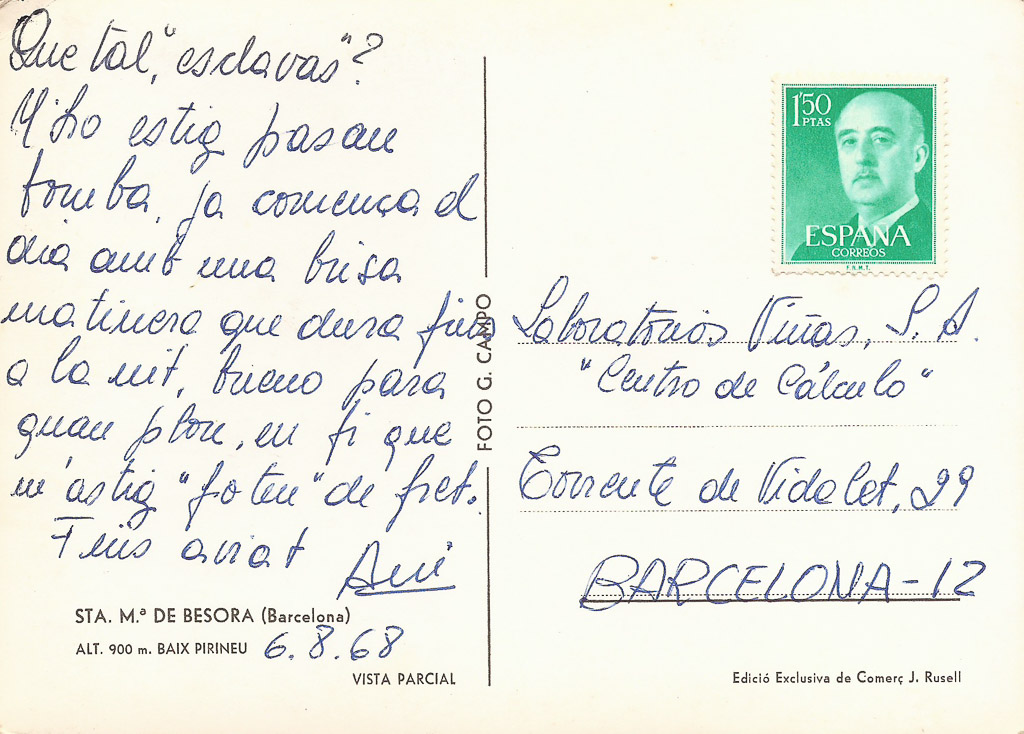 Que tal, "esclavas"?
Y'ho estig pasan
bomba, ja comença el
dia amb una brisa
matinera que dura fins
a la nit, bueno para
quan plou, en fi que
m'astig "foten" de fret.
Fins aviat
Ani
STA. M.ª DE BESORA (Barcelona)
ALT. 900 m. BAIX PIRINEU 6.8.68
VISTA PARCIAL
FOTO G. CAMPO
1'50
PTAS
ESPAÑA
CORREOS
F.N.M.T.
Laboratorios Viñas, S. A.
"Centro de Cálculo"
Torrente de Vidalet, 29
BARCELONA-12
Edició Exclusiva de Comerç J. Rusell